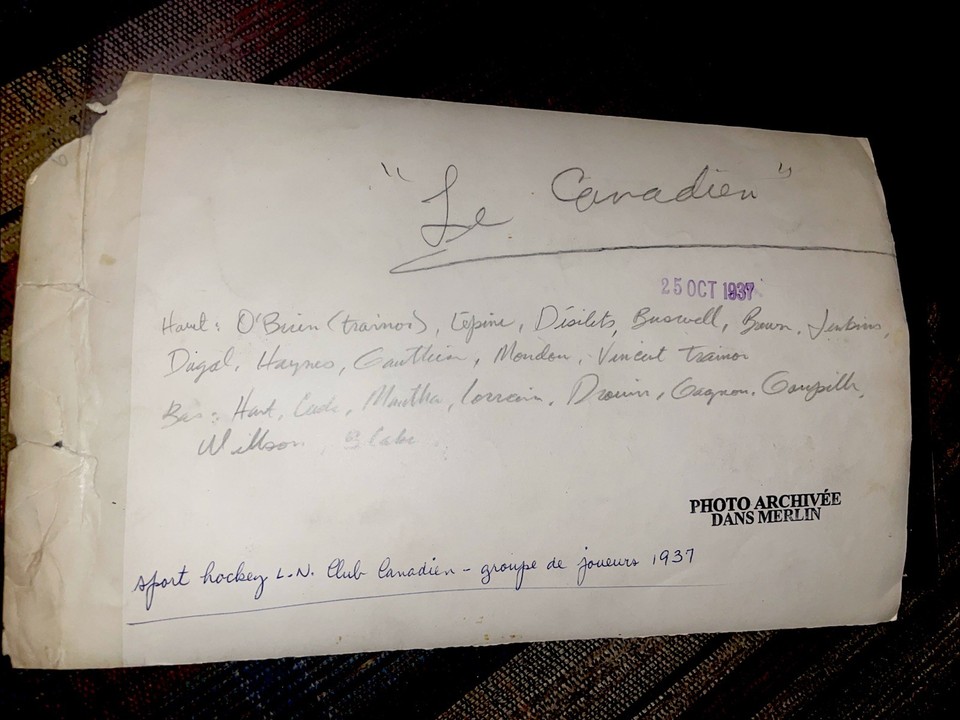 "Le Canadien"
25 OCT 1937
Haut: O'Brien (trainor), Lépine, Désilets, Buswell, Brown, Jenkins,
Haynes, Gauthier, Mondou, Vincent trainor
Bas: Hart, Mantha, Lorrain, Drouin, Gagnon, Goupille,
Willson, Blake
PHOTO ARCHIVÉE
DANS MERLIN
sport hockey L.N. Club Canadien - groupe de joueurs 1937